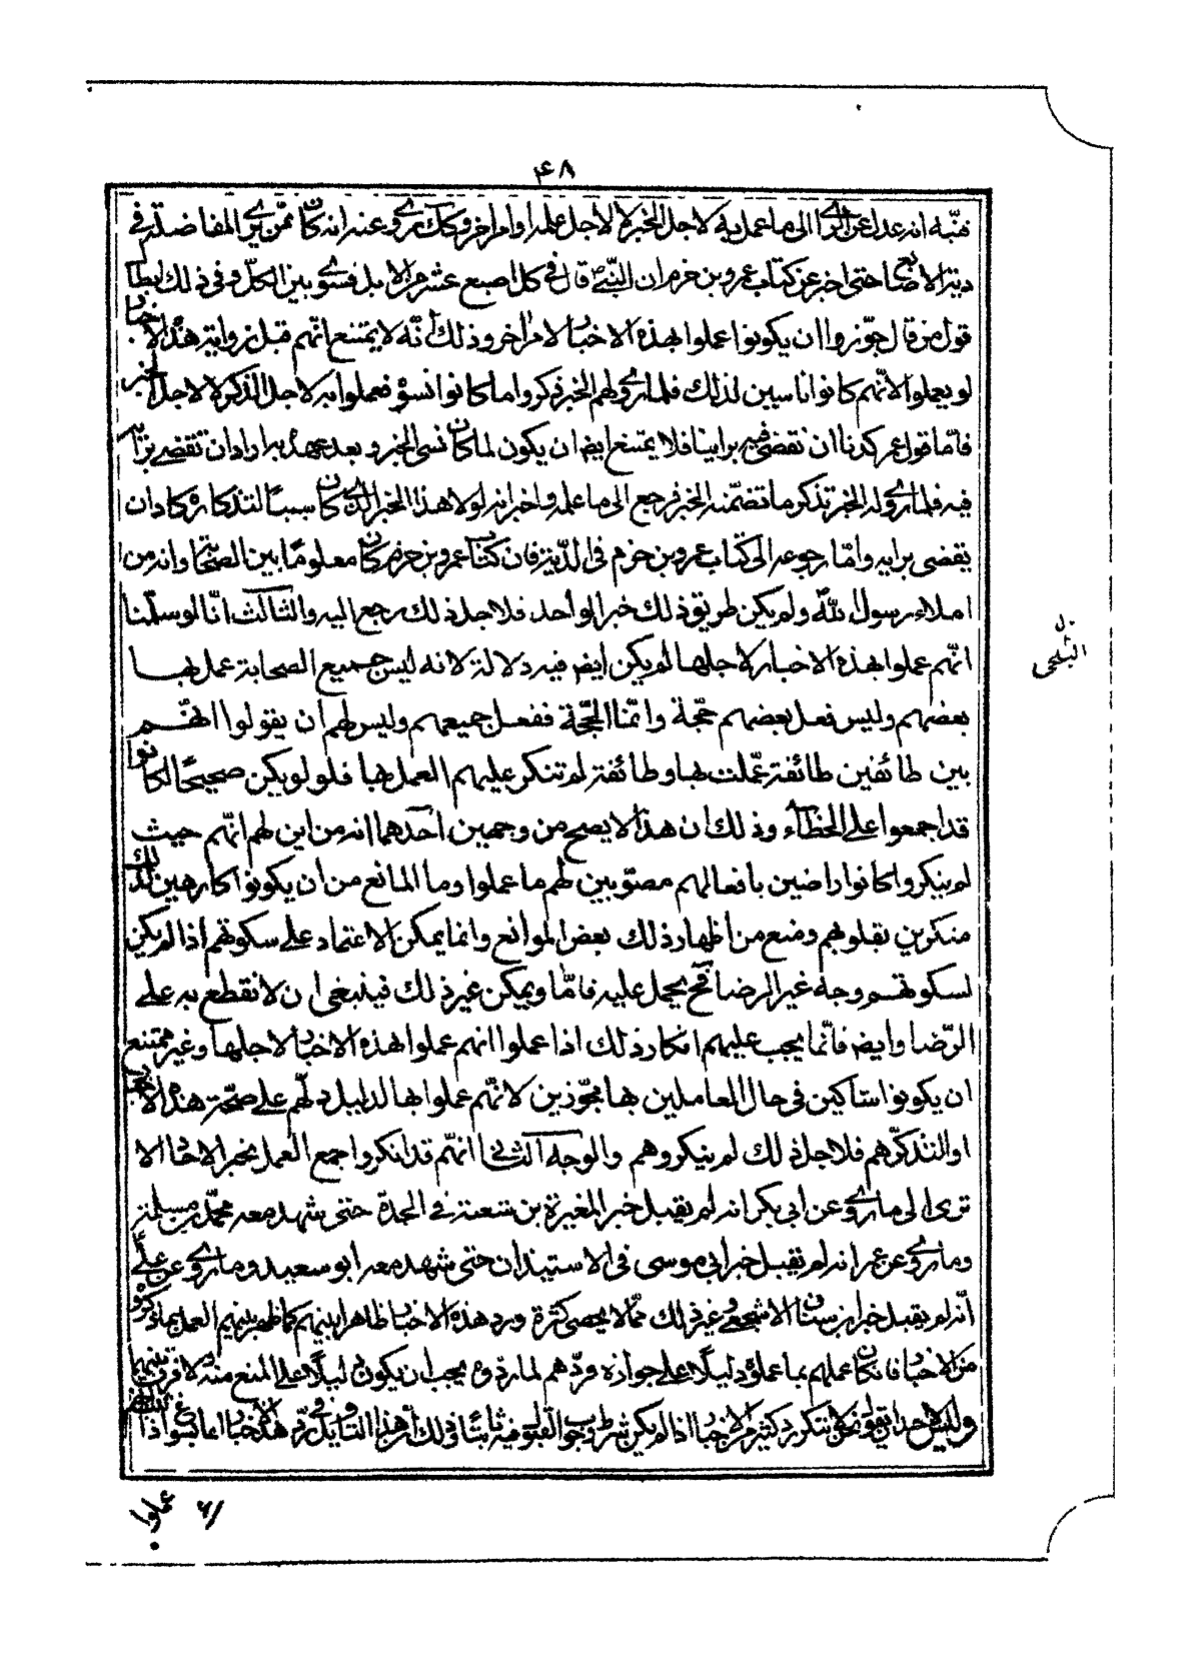 ۴۸
فنبّه انه عدل عن الرأى الى ما عمل به لاجل الخبر لا لاجل علمه او امر اخر وكك روى عنه انه كان ممّن يرى المفاضلة في
دية الاصابع حتى اخبر عن كتاب عمرو بن حزم ان النبي قال في كل اصبع عشر من الابل فسوى بين الكل وفي ذلك ابطال
قول من قال جوّزوا ان يكونوا عملوا بهذه الاخبار لامر اخر وذلك انّه لا يمتنع انّهم قبل رواية هذه الاخبار
لو يعملوا لانّهم كانوا ناسين لذلك فلما روى لهم الخبر ذكروا ما كانوا نسوه فعملوا به لاجل الذكر لا لاجل الخبر
فامّا قول عمر كدنا ان نقضى فيه براينا فلا يمتنع ايض ان يكون لما كان نسى الخبر وبعد عهده به اراد ان تقضى برايه
فيه فلما روى له الخبر تذكر ما تضمّنه الخبر فرجع الى ما علمه واخبر انه لولا هذا الخبر الذى كان سببًا لتذكاره كاد ان
يقضى برايه وامّا رجوعه الى كتاب عمرو بن حزم في الدّية فان كتاب عمرو بن حزم كان معلومًا بين الصحابة وانه من
املاء رسول الله ولم يكن طريق ذلك خبر الواحد فلاجل ذلك رجع اليه والثالث انّا لو سلّمنا
انّهم عملوا بهذه الاخبار لاجلها لم يكن ايض فيه دلالة لانه ليس جميع الصحابة عمل بها
بعضهم وليس فعل بعضهم حجّة وانّما الحجّة ففعل جميعهم وليس لهم ان يقولوا انّهم
بين طائفين طائفة عملت بها وطائفة لم تنكر عليهم العمل بها فلو لو يكن صحيحًا لكانوا
قد اجمعوا على الخطاء وذلك ان هذا لا يصح من وجهين احدهما انه من اين لهم انّهم حيث
لم ينكروا كانوا راضين بافعالهم مصوّبين لهم ما عملوا وما المانع من ان يكونوا كارهين لذلك
منكرين بقلوبهم ومنع من اظهار ذلك بعض الموانع وانما يمكن الاعتماد على سكوتهم اذا لم يكن
لسكوتهم وجه غير الرضا فح يحمل عليه فامّا ويمكن غير ذلك فينبغى ان لا نقطع به على
الرّضا وايض فانّما يجب عليهم انكار ذلك اذا عملوا انهم عملوا بهذه الاخبار لاجلها وغير ممتنع
ان يكونوا شاكين في حال العاملين بها مجوّزين لانّهم عملوا بها لدليل دلّهم على صحّة هذه الاخبار
او لتذكّرهم فلاجل ذلك لم ينكروهم والوجه الثانى انّهم قد انكروا اجمع العمل بخبر الاحاد الا
ترى الى ما روى عن ابى بكر انه لم يقبل خبر المغيرة بن شعبة في الجدة حتى شهد معه محمّد بن مسلمة
وما روى عن عمر انه لم يقبل خبر ابى موسى في الاستيذان حتى شهد معه ابو سعيد وما روى عن على
انّه لم يقبل خبر ابن سنان الاشجعى وغير ذلك ممّا لا يحصى كثرة ورد هذه الاخبار ظاهر بينهم كما ظهر بينهم العمل بما ذكروه
من الاخبار فان كان عملهم بما عملوه دليلًا على جوازه فردّهم لما ردّوه يجب ان يكون دليلًا على المنع منه لا فرق بينهما
وليس لاحد ان يقول نحن لا ننكر رد كثير من الاخبار اذا لم يكن شروط وجوب القبول فيه ثابتا وذلك
ن ل
البلخى
۶/
عملوا